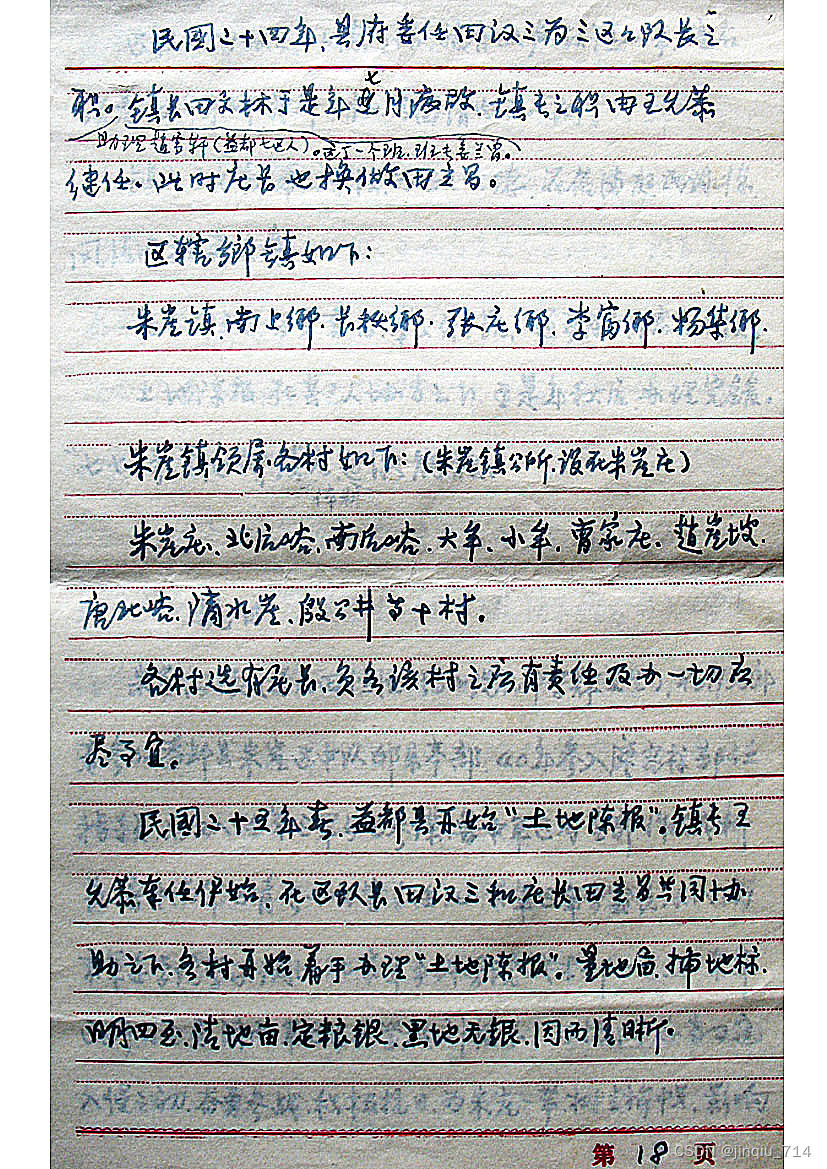 民國二十四年,县府委任田汉三为三区区队长之
职。镇长田文林于是年七月病故,镇长之职由王允恭
助理赵筹轩(益都七区人)。这丁一个班,班长姜兰圃。
继任。此时庄长也换做田立昌。
区辖乡镇如下:
朱崖镇,南上鄉.长秋鄉.张庄鄉.李富鄉.杨集鄉.
朱崖镇领属各村如下:(朱崖镇公所.设在朱崖庄)
朱崖庄、北后峪,南后峪.大牟、小牟,曹家庄、趙崖坡.
唐北峪.滴水崖、殷公井等十村。
各村选有庄长,负各该村之所有责任及办一切应
尽事宜。
民國二十五年春.益都县开始“土地陈报”。镇长王
允恭莅任伊始,在区队长田汉三和庄长田立昌共同协
助之下、各村开始着手办理“土地陈报”。量地亩,插地标.
明四至,清地亩,定粮银.黑地无银,因而清晰。
第 18 页
CSDN @jinqiu_714